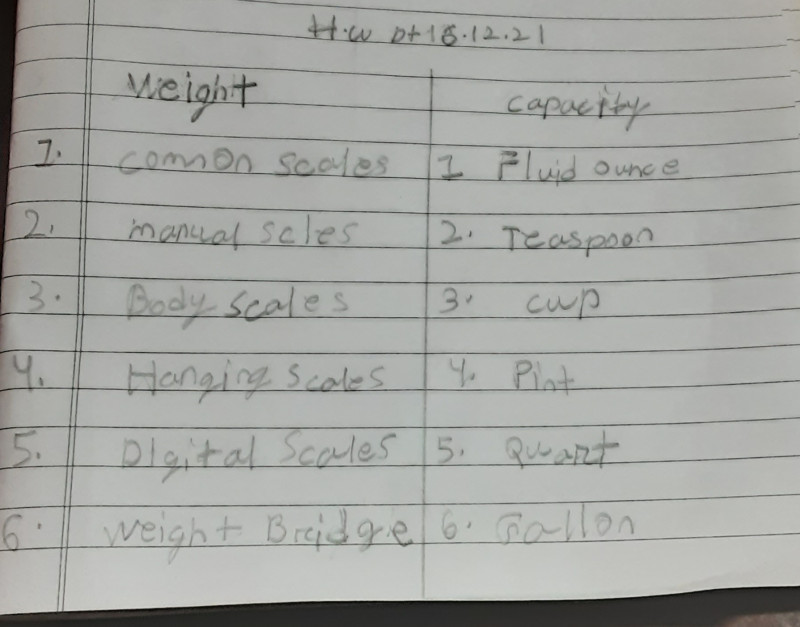 H.W Dt 16.12.21
Weight capacity
1. common scales 1 Fluid ounce
2. manual scles 2. Teaspoon
3. Body scales 3. cup
4. Hanging scales 4. Pint
5. Digital Scales 5. Quart
6. weight Braidge 6. Gallon